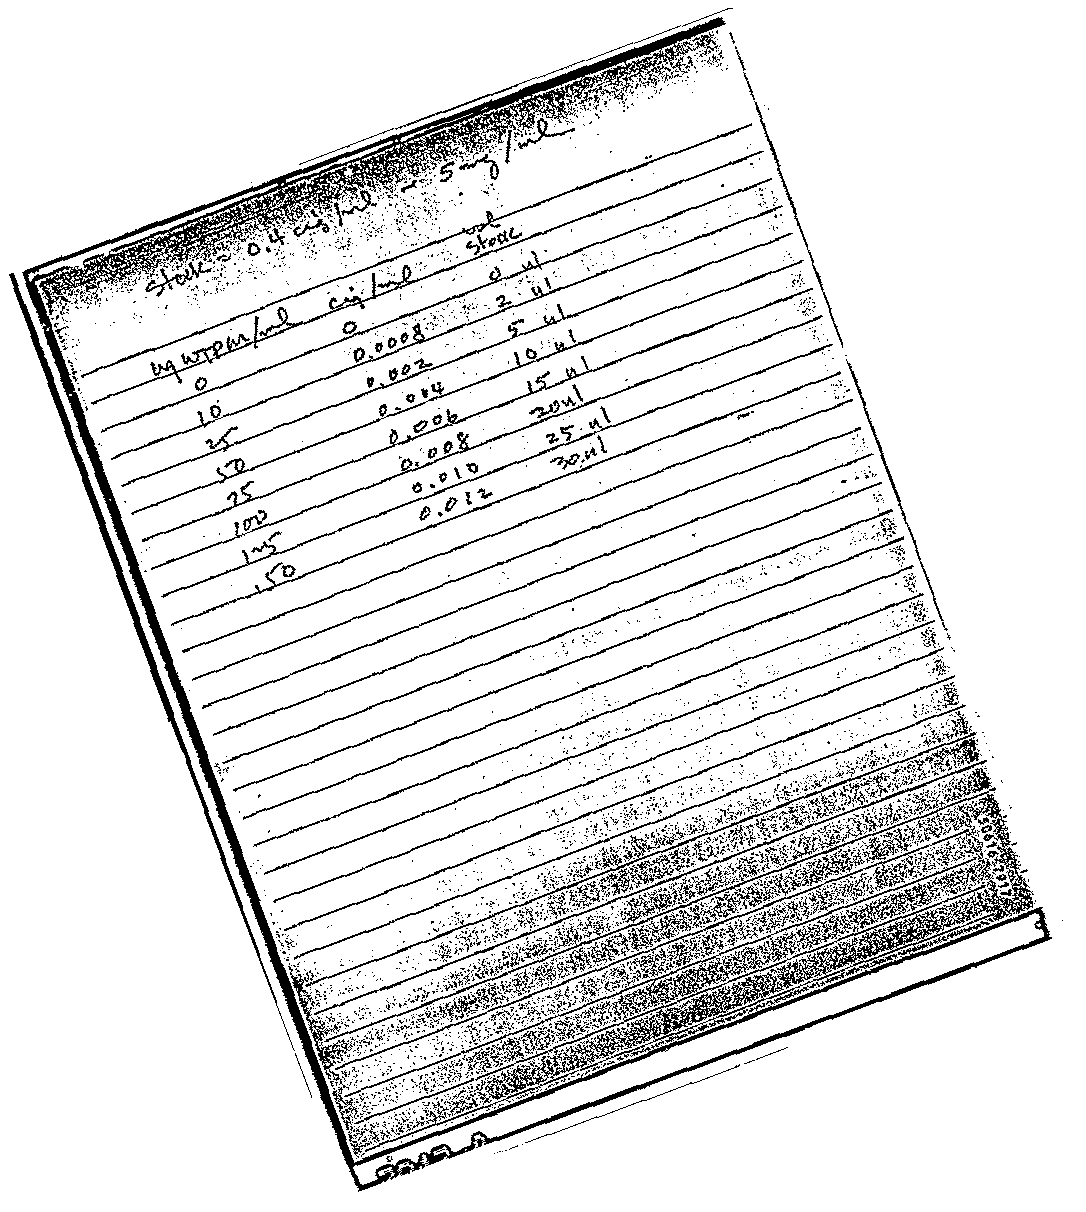 Stock - 0.4 cig/ml ~ 5 mg/ml
ug WTPM/ml cig/ml vol stock
0 0 0 ul
10 0.0008 2 ul
25 0.002 5 ul
50 0.004 10 ul
75 0.006 15 ul
100 0.008 20 ul
125 0.010 25 ul
150 0.012 30 ul